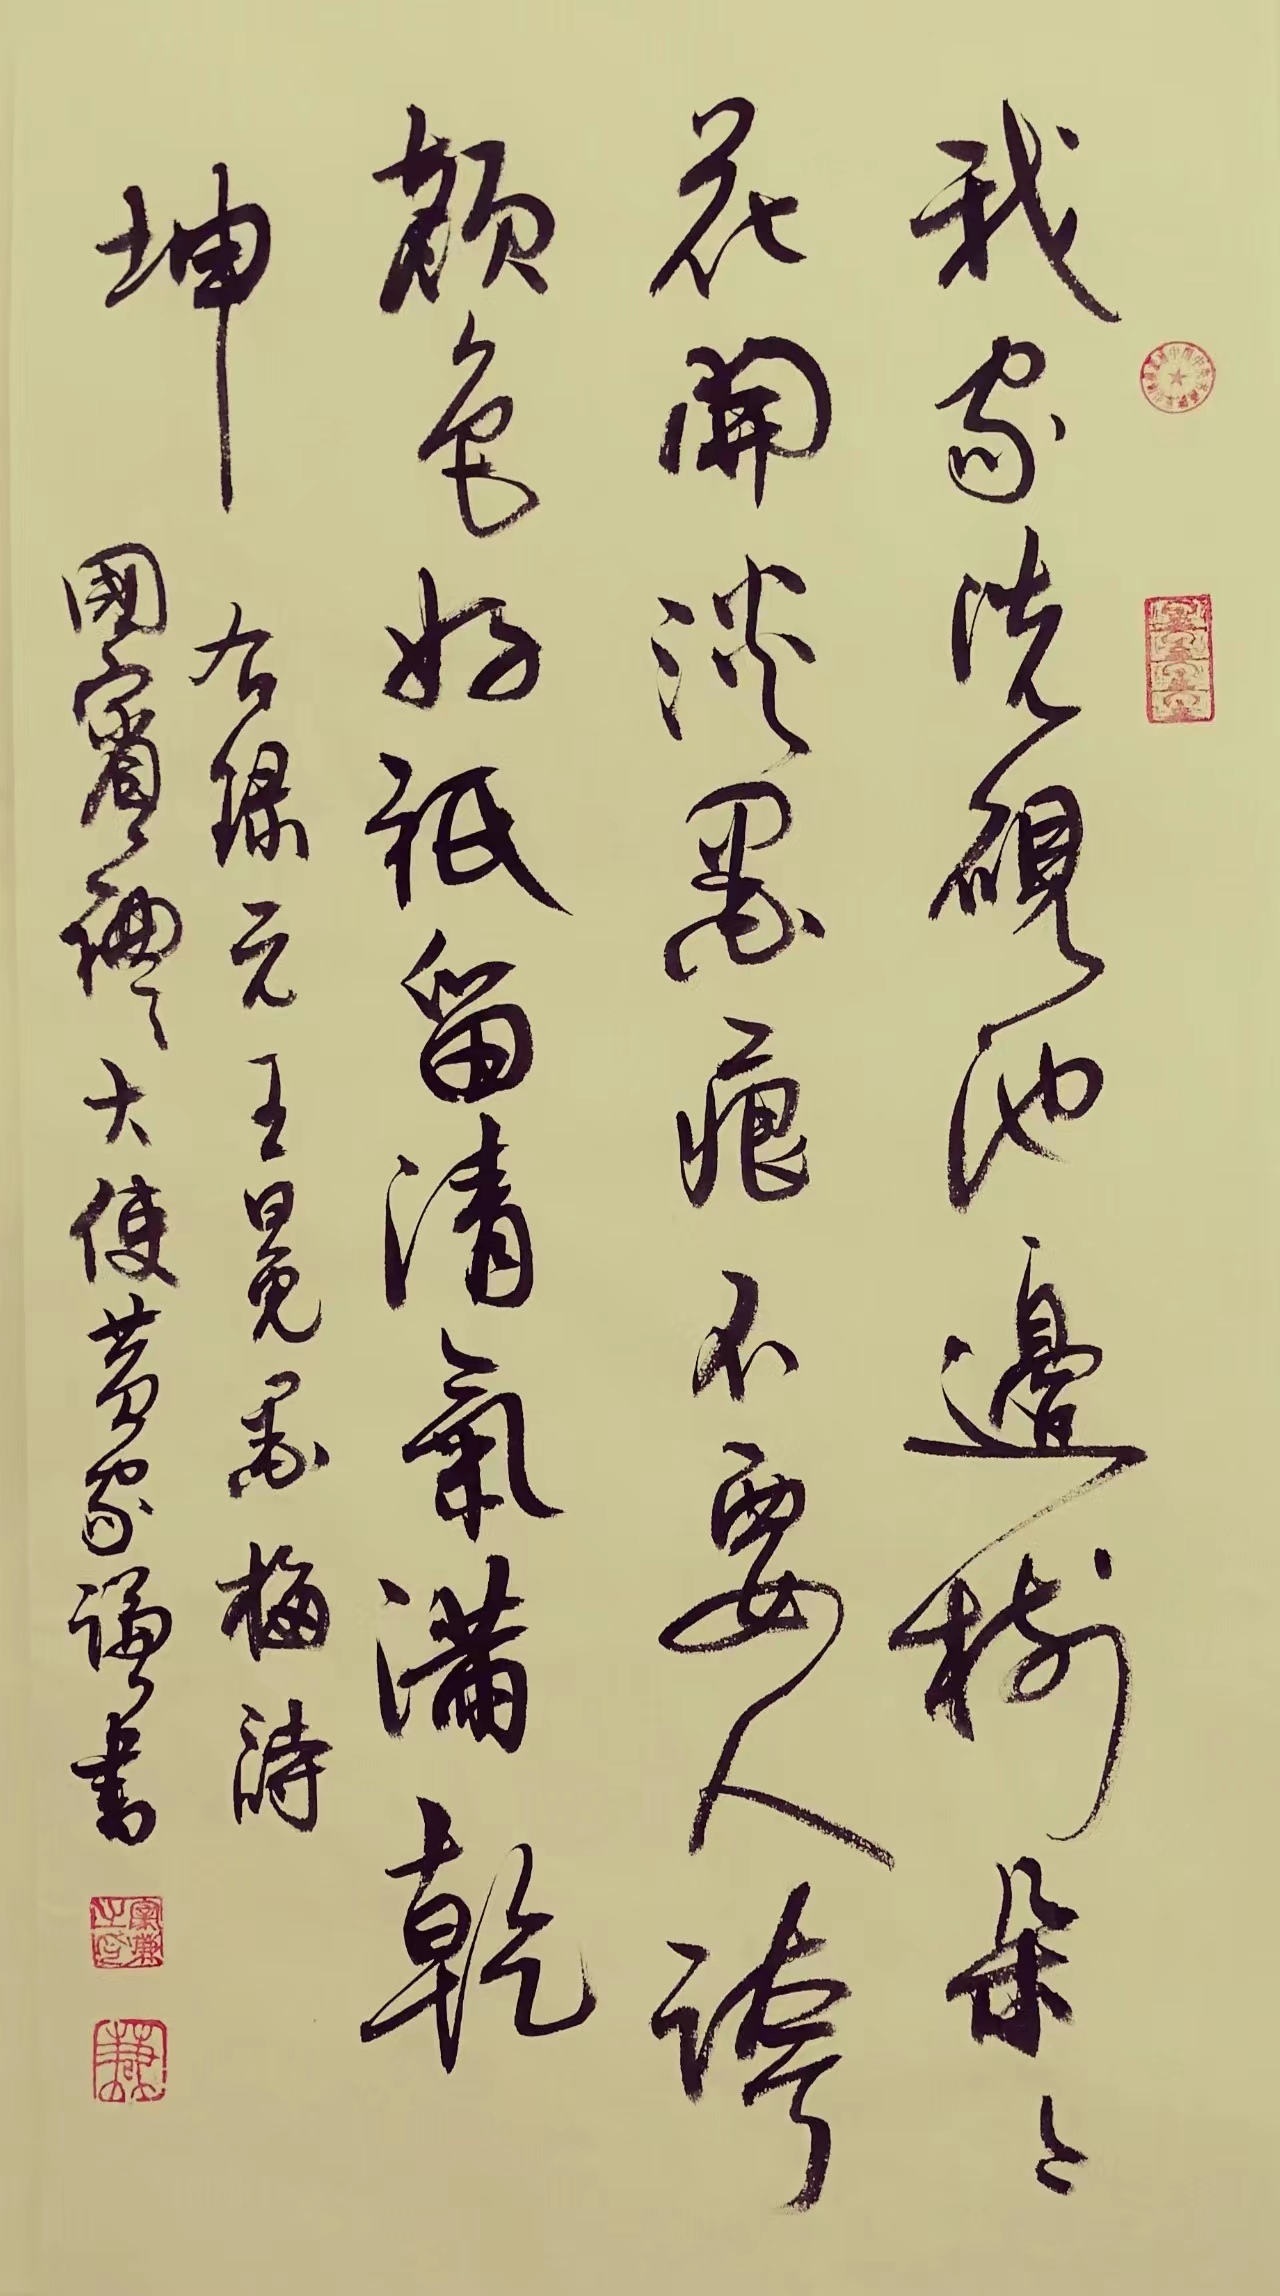 我家洗硯池邊樹朵々
花開淡墨痕不要人誇
顏色好祇留清氣滿乾
坤
右録元王冕墨梅詩
國賓禮大使黄家謙書